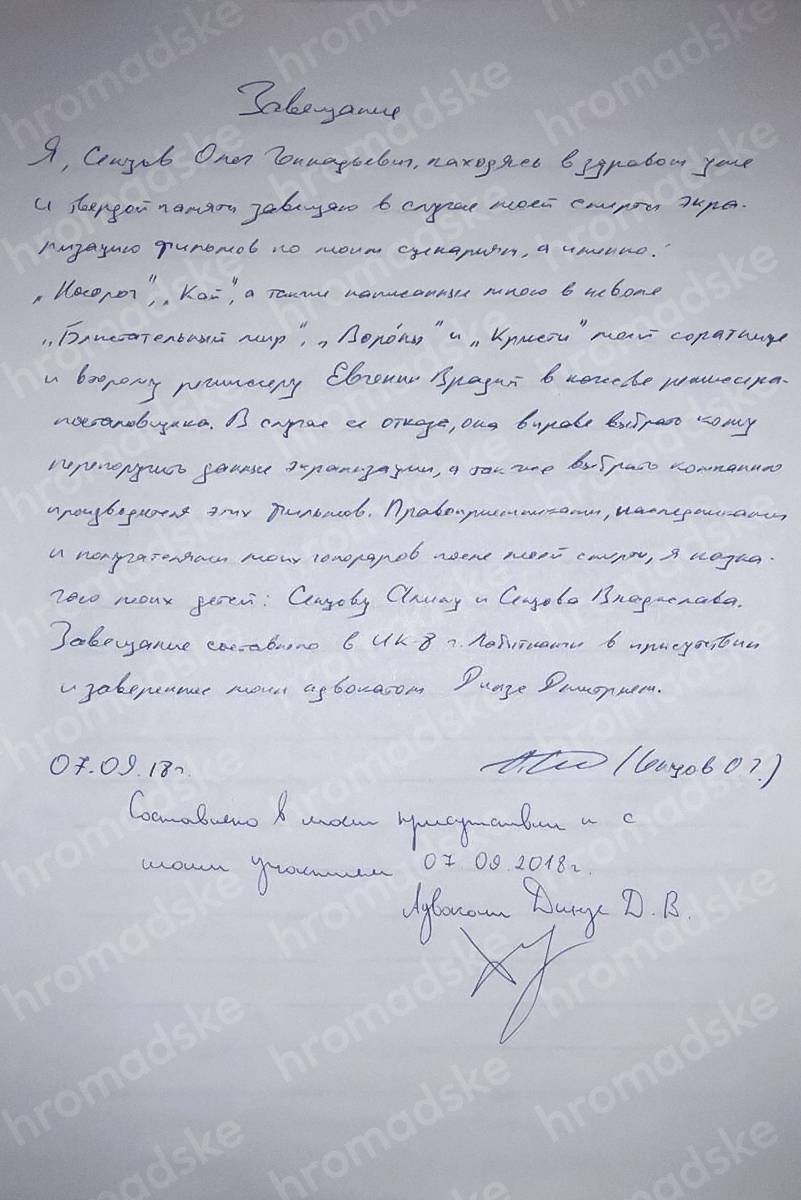 Завещание
Я, Сенцов Олег Геннадьевич, находясь в здравом уме
и твердой памяти завещаю в случае моей смерти экра-
низацию фильмов по моим сценариям, а именно:
„Носорог", „Кай", а также написанные мною в неволе
„Блистательный мир", „Воро́ны" и „Кристи" моей соратнице
и второму режиссеру Евгении Врадий в качестве режиссера-
постановщика. В случае ее отказа, она вправе выбрать кому
перепоручить данные экранизации, а так же выбрать компанию
производителя этих фильмов. Правоприемниками, наследниками
и получателями моих гонораров после моей смерти, я назна-
чаю моих детей: Сенцову Алину и Сенцова Владислава.
Завещание составлено в ИК-8 г. Лабытнанги в присутствии
и заверенное моим адвокатом Динзе Дмитрием.
07.09.18г. (Сенцов О Г.)
Составлено в моем присутствии и с
моим участием 07.09.2018г.
Адвокат Динзе Д.В.
hromadske